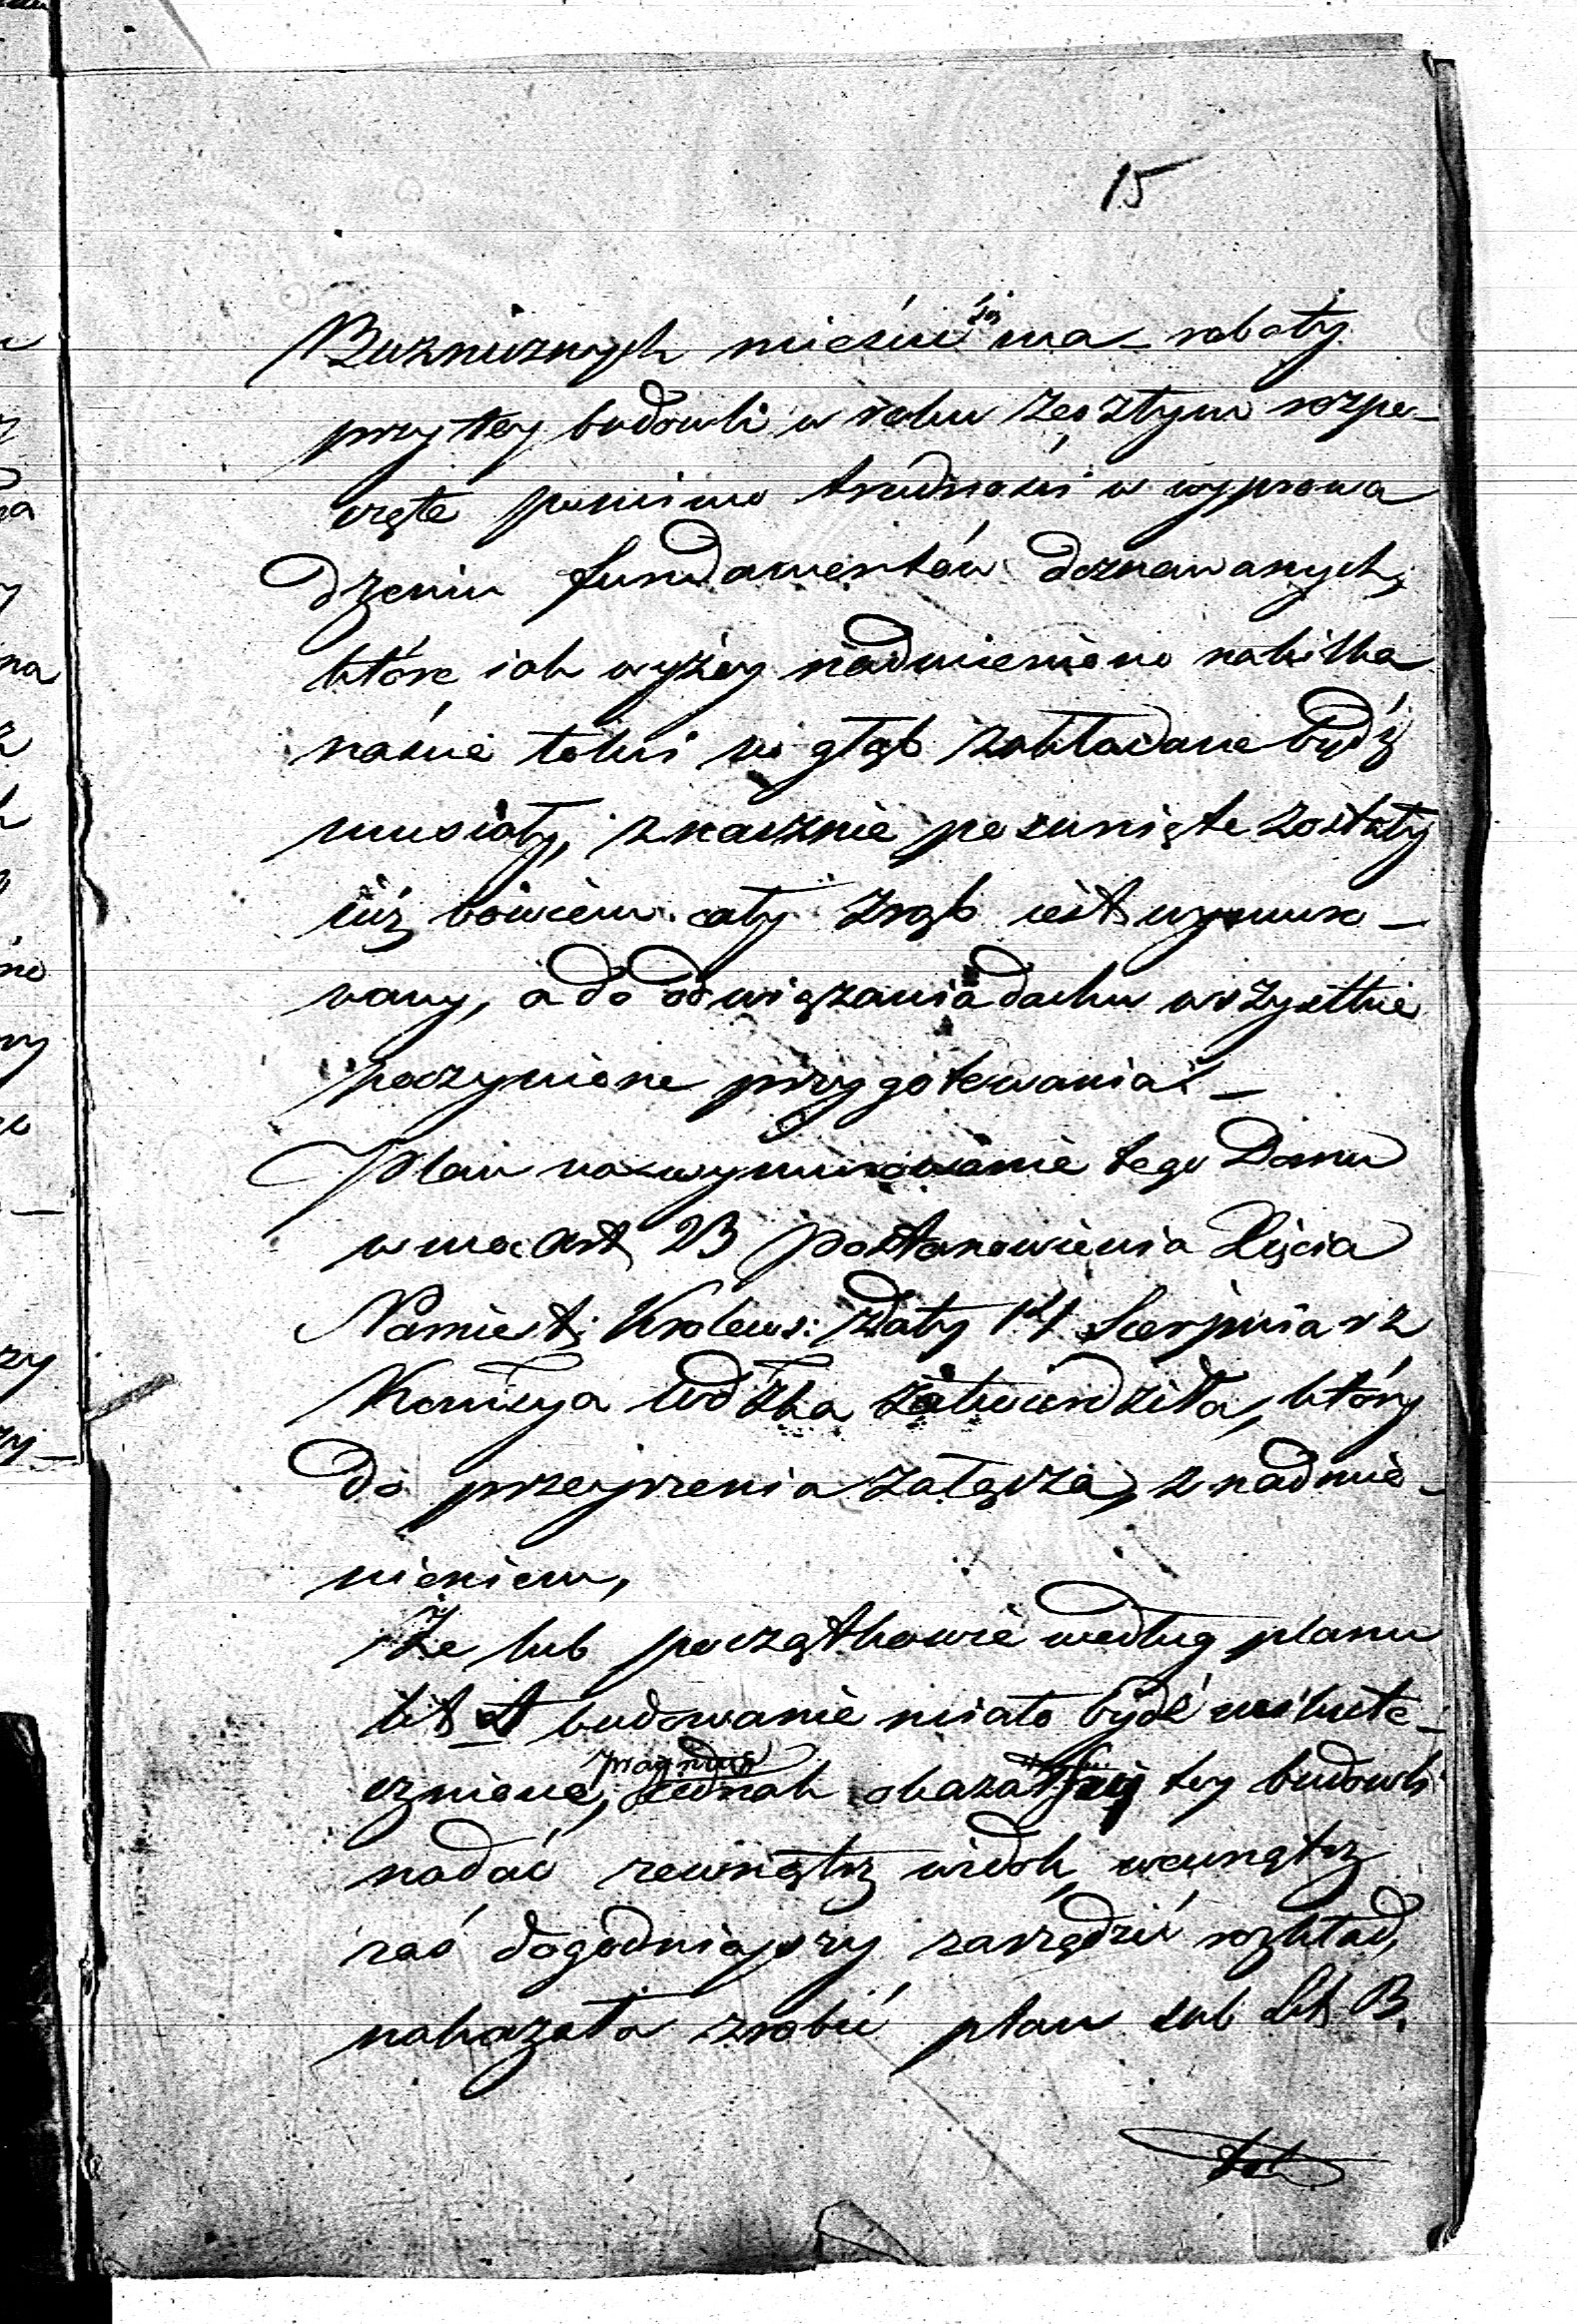 15
Buzniczych mieścić się ma – roboty
przy tey budowli w roku zeszłym rozpo-
częte pomimo trudności w wyprowa
dzeniu fundamentów doznawanych,
które iak wyżey nadmieniono na kilka
naście łokci w głąb zakładane bydź
musiały, znacznie posunięte zostały
iuż bowiem cały zrąb iest wymuro-
wany, a do odwiązania dachu wszystkie
poczynione przygotowania –
Plan na wymurowanie tego Domu
w moc Art 23 postanowienia Xięcia
Namiest: Królews: z daty 14 Sierpnia r z
Komisya Wdzka zatwierdziła, który
do przeyrzenia załącza, z nadmie-
nieniem,
Że lub początkowie według planu
lit A budowanie miało bydź uskute-
cznione, pragnąc tey budowli
nadać zewnątrz widok, wewnątrz
zaś dogodniejszy zarządzić rozkład,
nakazała zrobić plan sub Lit B.